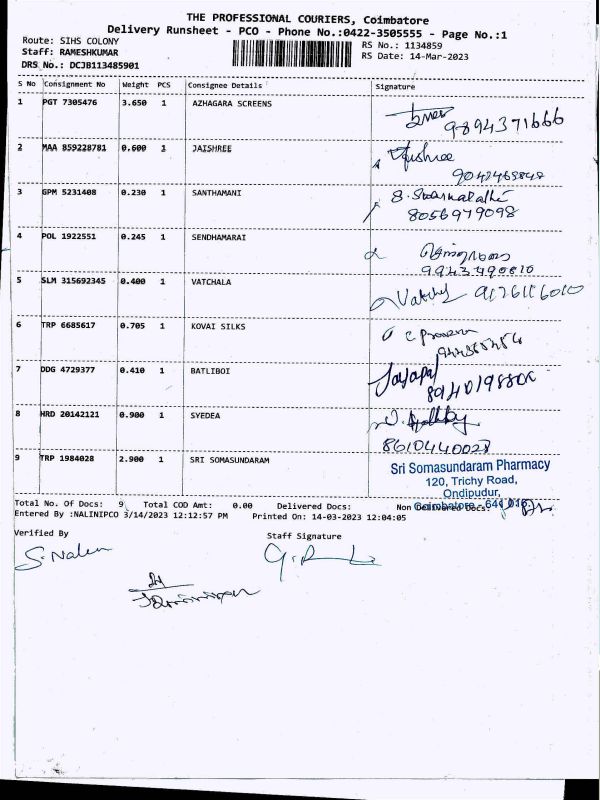 THE PROFESSIONAL COURIERS, Coimbatore
Delivery Runsheet - PCO - Phone No.:0422-3505555 - Page No.:1
Route: SIHS COLONY
Staff: RAMESHKUMAR
DRS No.: DCJB113485901
RS No.: 1134859
RS Date: 14-Mar-2023
S No Consignment No Weight PCS Consignee Details Signature
1 PGT 7305476 3.650 1 AZHAGARA SCREENS
9894371666
2 MAA 859228781 0.600 1 JAISHREE
3 GPM 5231408 0.230 1 SANTHAMANI
8056979098
4 POL 1922551 0.245 1 SENDHAMARAI
5 SLM 315692345 0.400 1 VATCHALA
6 TRP 6685617 0.705 1 KOVAI SILKS
7 DDG 4729377 0.410 1 BATLIBOI
Jayapal
8 HRD 20142121 0.900 1 SYEDEA
8610440028
9 TRP 1984028 2.900 1 SRI SOMASUNDARAM
Sri Somasundaram Pharmacy
120, Trichy Road,
Ondipudur,
Coimbatore - 641 016.
Total No. Of Docs: 9 Total COD Amt: 0.00 Delivered Docs: Non Delivered Docs:
Entered By :NALINIPCO 3/14/2023 12:12:57 PM Printed On: 14-03-2023 12:04:05
Verified By Staff Signature
S. Nalini